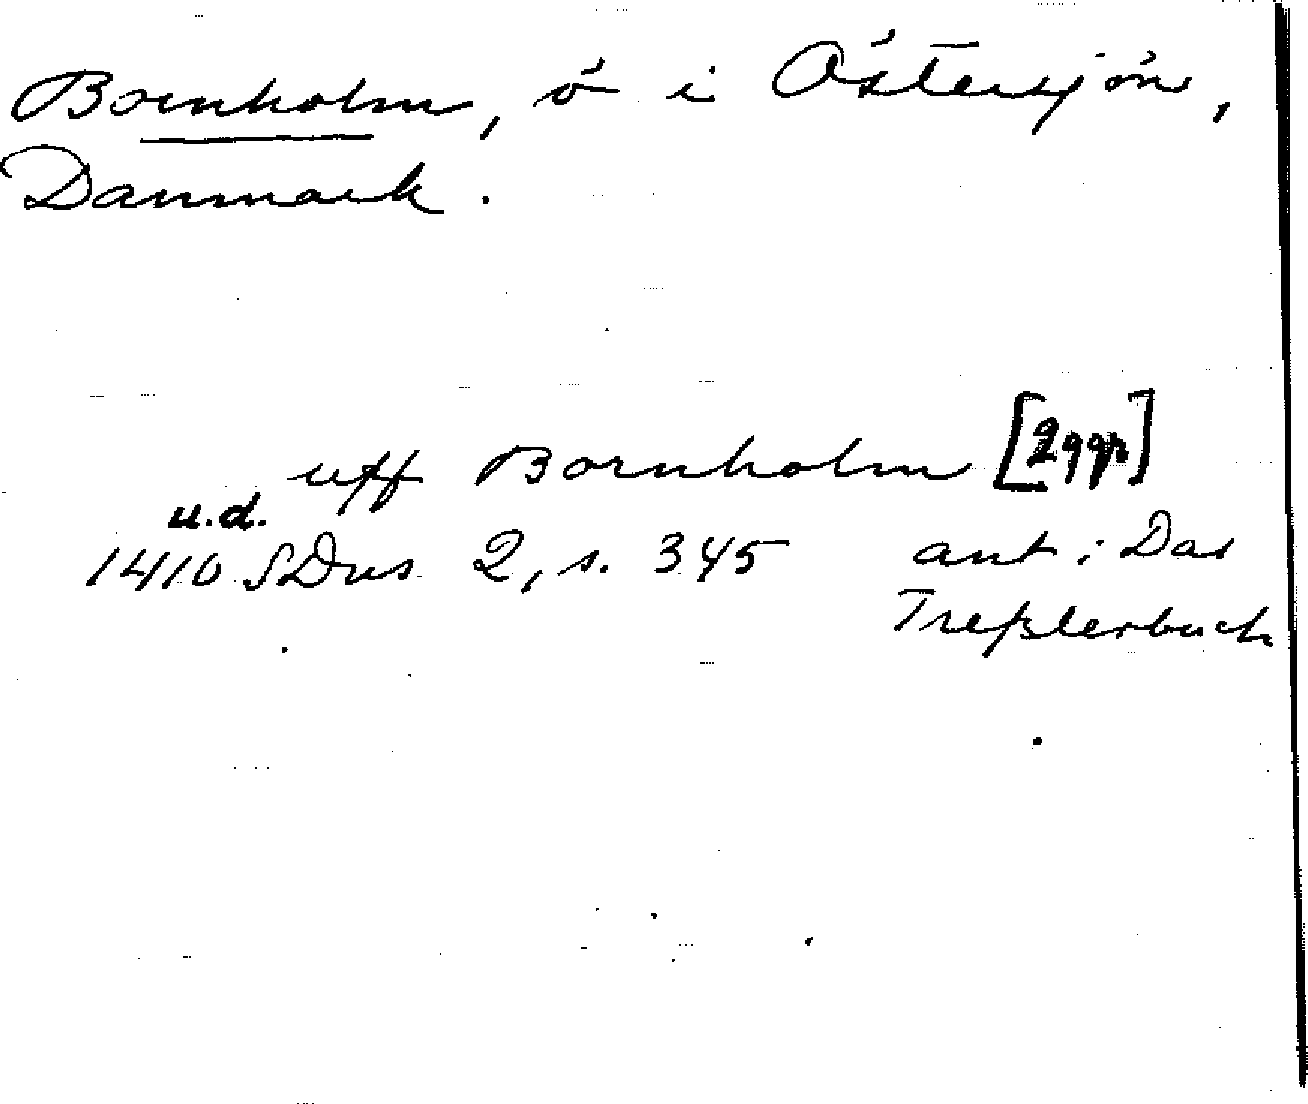 Bornholm, ö i Östersjön,
Danmark.
uff Bornholm [2 ggr]
u.d.
1410 SDns 2, s. 345 ant. i Das
Treßlerbuch